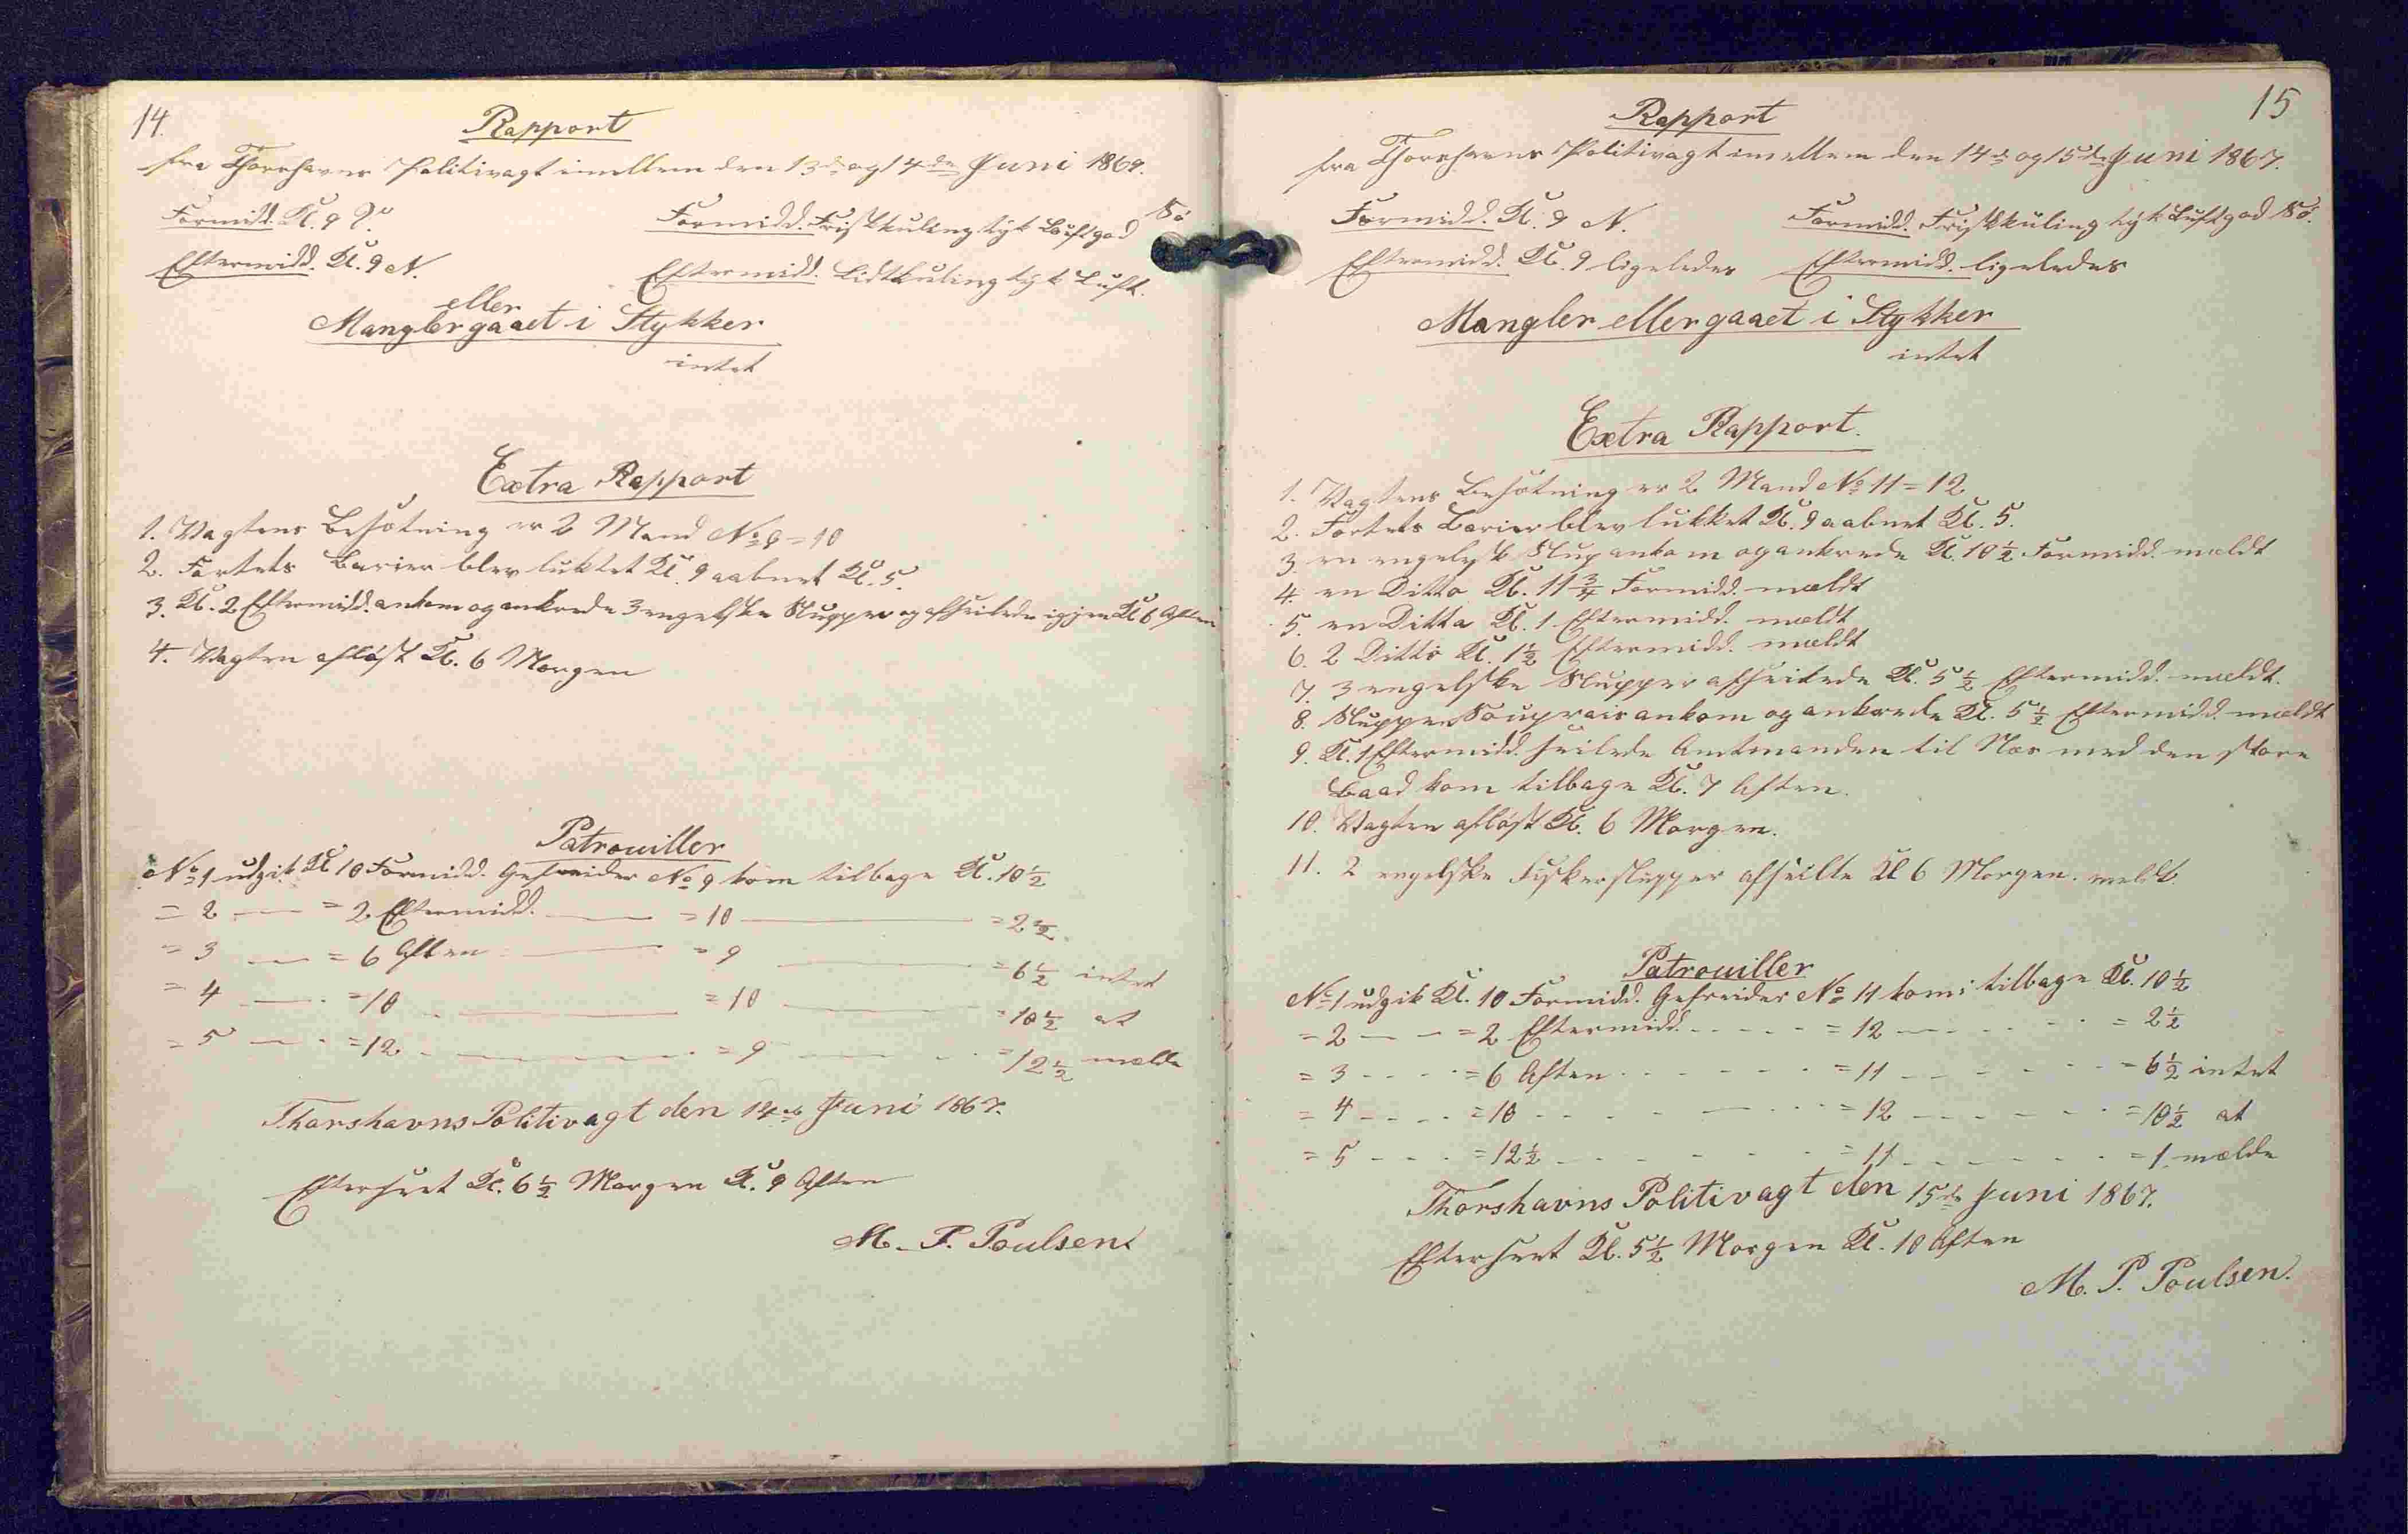 14.
Rapport
fra Thorshavns Politivagt imellem den 13de og 14de Juni 1867.
Formidd. Kl. 9
Formidd. Frisk kuling tyk Luft god Sö
Eftermidd. Kl. 9 N.
Eftermidd. Lidt kuling tyk Luft.
eller
Mangler gaaet i Stykker
intet
Extra Rapport
1. Vagtens Besætning er 2 Mand No 9 = 10
2. Fortets Barier blev lukket Kl. 9 aabnet Kl. 5
3. Kl. 2 Eftermidd. ankom og ankrede 3 engelske Slupper og afseilede igjen Kl 6 Aften
4. Vagten aflöst Kl. 6 Morgen
Patrouiller
No 1 udgik Kl 10 Formidd. Gefreider No 9 kom tilbage Kl. 10 1/2
= 2 — = 2 Eftermidd. — = 10 — = 2 1/2
= 3 — = 6 Aften — = 9 — = 6 1/2 intet
= 4 — = 10 — = 10 — = 10 1/2 at
= 5 — = 12 — = 9 — = 12 1/2 melde
Thorshavns Politivagt den 14de Juni 1867.
Efterseet Kl. 6 1/2 Morgen Kl. 9 Aften
M. P. Poulsen
15
Rapport
fra Thorshavns Politivagt imellem den 14de og 15de Juni 1867.
Formidd. Kl. 9 N.
Formidd. Frisk kuling tyk Luft god Sö.
Eftermidd. Kl. 9 ligeledes
Eftermidd. ligeledes
Mangler eller gaaet i Stykker
intet
Extra Rapport.
1. Vagtens Besætning er 2 Mand No 11 = 12
2. Fortets Barier blev lukket Kl. 9 aabnet Kl. 5.
3. en engelsk Slup ankom og ankrede Kl. 10 1/2 Formidd. meldt
4. en Ditto Kl. 11 3/4 Formidd. meldt
5. en Ditto Kl. 1 Eftermidd. meldt
6. 2 Ditto Kl. 1 1/2 Eftermidd. meldt
7. 3 engelske Slupper afseilede Kl. 5 1/2 Eftermidd. meldt.
8. Sluppen ankom og ankrede Kl. 5 1/2 Eftermidd. meldt
9. Kl. 1 Eftermidd. seilede Amtmanden til Næs med den store
Baad kom tilbage Kl. 7 Aften.
10. Vagten aflöst Kl. 6 Morgen.
11. 2 engelske Fiskerslupper afseilte Kl 6 Morgen. meldt.
Patrouiller
No 1 udgik Kl. 10 Formidd. Gefreider No 11 kom tilbage Kl. 10 1/2
= 2 — = 2 Eftermidd. — = 12 — = 2 1/2
= 3 — = 6 Aften — = 11 — = 6 1/2 intet
= 4 — = 10 — = 12 — = 10 1/2 at
= 5 — = 12 1/2 — = 11 — = 1 melde
Thorshavns Politivagt den 15de Juni 1867.
Efterseet Kl. 5 1/2 Morgen Kl. 10 Aften
M. P. Poulsen.